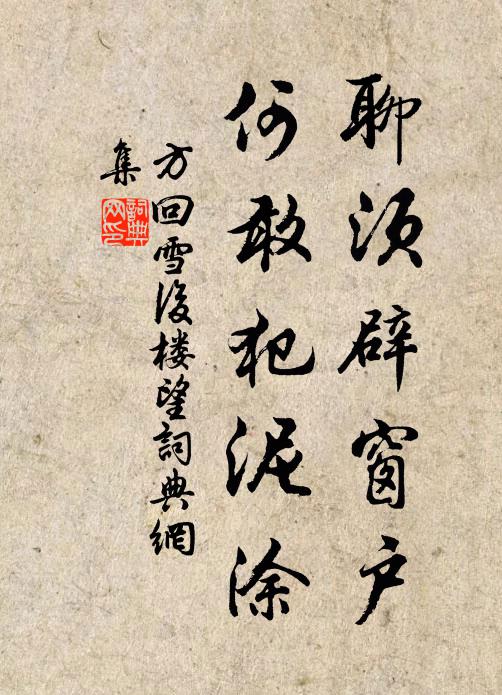 聊须辟窗户
何敢犯泥涂
方回雪後楼望詞典網
集
詞典網印